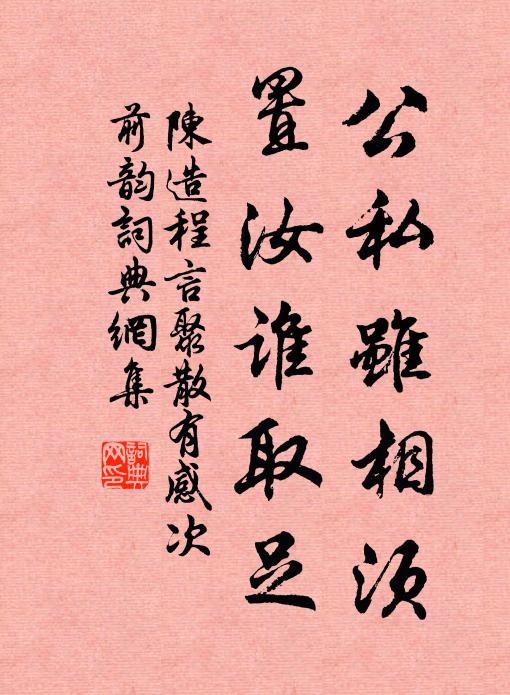 公私雖相須
置汝誰取足
陳造程言聚散有感次
前韵詞典網集
詞典
网印